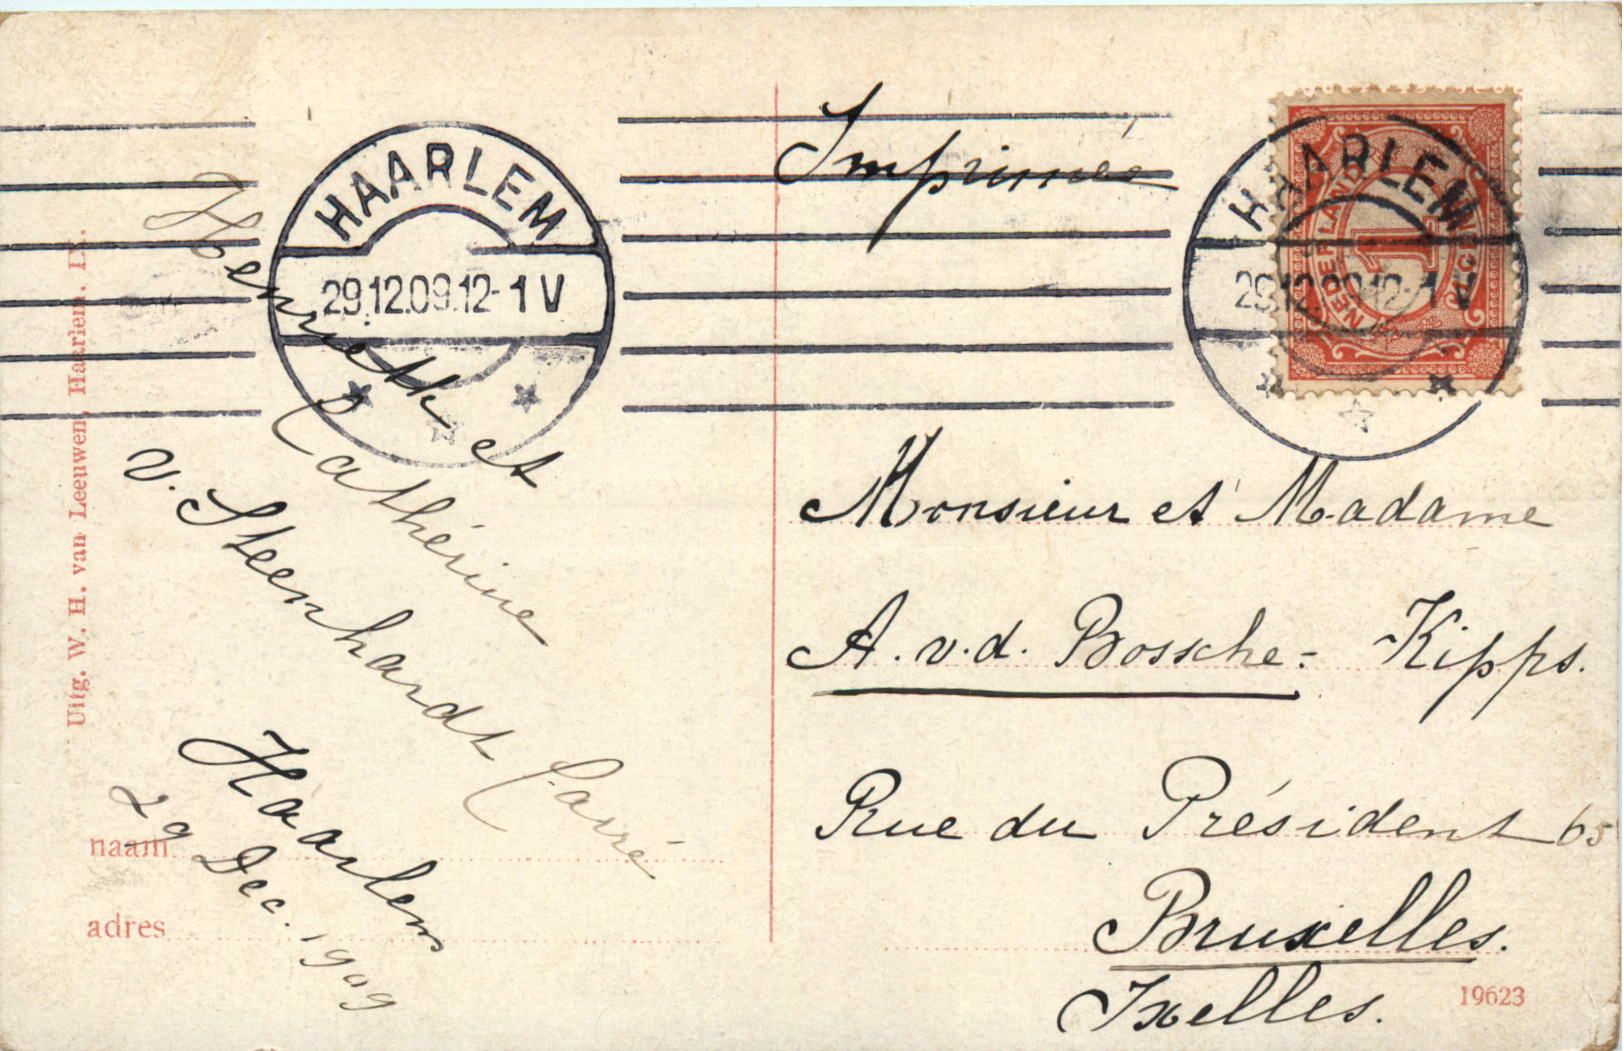 Uitg. W. H. van Leeuwen, Haarlem. IX.
HAARLEM
29.12.09.12-1V
Henriette et
Cathérine
v. Steenhardt Carré
Haarlem
29 Dec. 1909
naam
adres
Imprimée
HAARLEM
29.12.09.12-1V
NEDERLAND
1
Monsieur et Madame
A. v. d. Bossche - Kipps.
Rue du Président 65
Bruxelles.
Ixelles.
19623